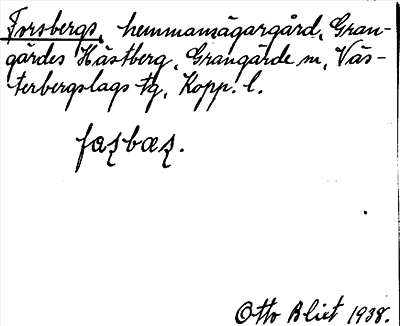 Forsbergs, hemmansägargård, Gran-
gärdes Hästberg, Grangärde sn, Väs-
terbergslags tg, Kopp. l.
Otto Blixt 1938.